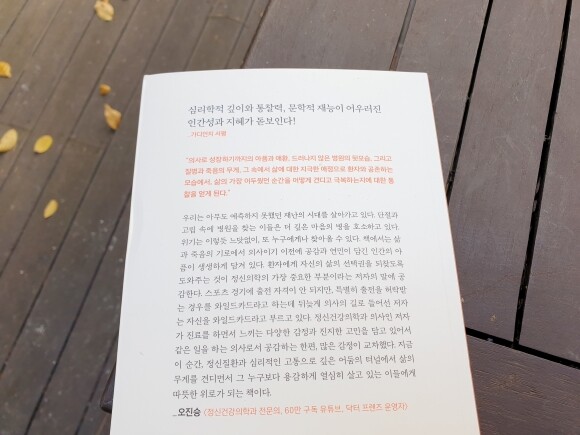 심리학적 깊이와 통찰력, 문학적 재능이 어우러진
인간성과 지혜가 돋보인다!
_가디언지 서평
"의사로 성장하기까지의 아픔과 애환, 드러나지 않은 병원의 뒷모습, 그리고
질병과 죽음의 무게, 그 속에서 삶에 대한 지극한 애정으로 환자와 공존하는
모습에서, 삶의 가장 어두웠던 순간을 어떻게 견디고 극복하는지에 대한 통
찰을 얻게 된다."
우리는 아무도 예측하지 못했던 재난의 시대를 살아가고 있다. 단절과
고립 속에 병원을 찾는 이들은 더 깊은 마음의 병을 호소하고 있다.
위기는 이렇듯 느닷없이, 또 누구에게나 찾아올 수 있다. 책에서는 삶
과 죽음의 기로에서 의사이기 이전에 공감과 연민이 담긴 인간의 아
픔이 생생하게 담겨 있다. 환자에게 자신의 삶의 선택권을 되찾도록
도와주는 것이 정신의학의 가장 중요한 부분이라는 저자의 말에 공
감한다. 스포츠 경기에 출전 자격이 안 되지만, 특별히 출전을 허락받
는 경우를 와일드카드라고 하는데 뒤늦게 의사의 길로 들어선 저자
는 자신을 와일드카드라고 부르고 있다. 정신건강의학과 의사인 저자
가 진료를 하면서 느끼는 다양한 감정과 진지한 고민을 담고 있어서
같은 일을 하는 의사로서 공감하는 한편, 많은 감정이 교차했다. 지금
이 순간, 정신질환과 심리적인 고통으로 깊은 어둠의 터널에서 삶의
무게를 견디면서 그 누구보다 용감하게 열심히 살고 있는 이들에게
따뜻한 위로가 되는 책이다.
_오진승 〈정신건강의학과 전문의, 60만 구독 유튜브, 닥터 프렌즈 운영자〉